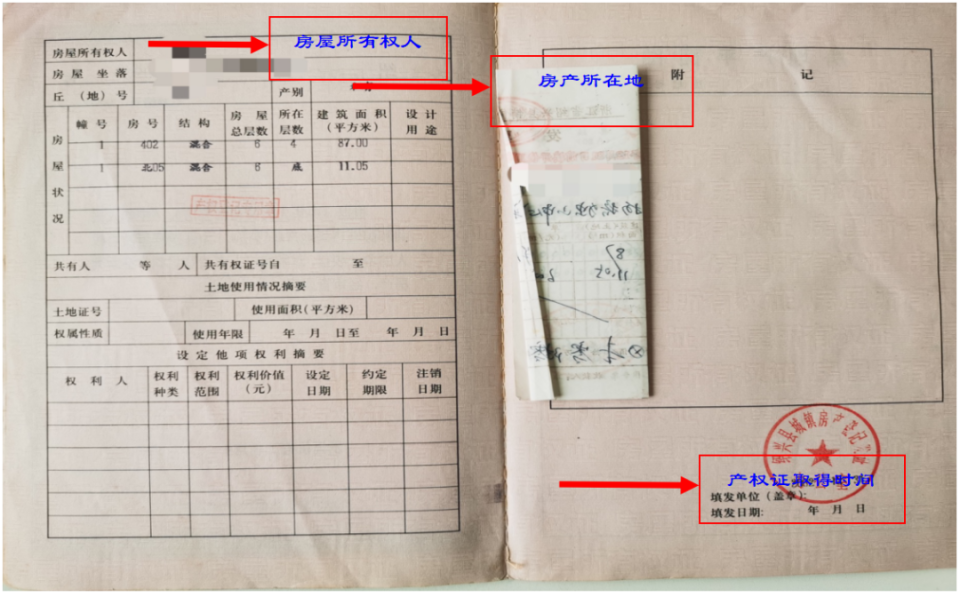 房屋所有权人
房屋所有权人
房屋坐落
丘（地）号
产别
房屋状况
幢号
房号
结构
房屋总层数
所在层数
建筑面积(平方米)
设计用途
1
402
混合
6
4
87.00
1
北05
混合
6
底
11.05
共有人
等
人
共有权证号自
至
土地使用情况摘要
土地证号
使用面积(平方米)
权属性质
使用年限
年 月 日至 年 月 日
设定他项权利摘要
权利人
权利种类
权利范围
权利价值(元)
设定日期
约定期限
注销日期
房产所在地
附 记
产权证取得时间
填发单位（盖章）：
填发日期： 年 月 日